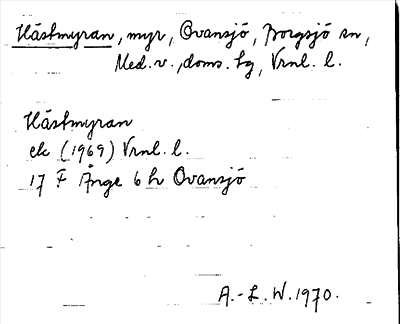 Hästmyran, myr, Ovansjö, Borgsjö sn,
Med. v. doms. tg, Vrnl. l.
Hästmyran
ek (1969) Vrnl. l.
17 F Ånge 6 h Ovansjö
A.-L. W. 1970.